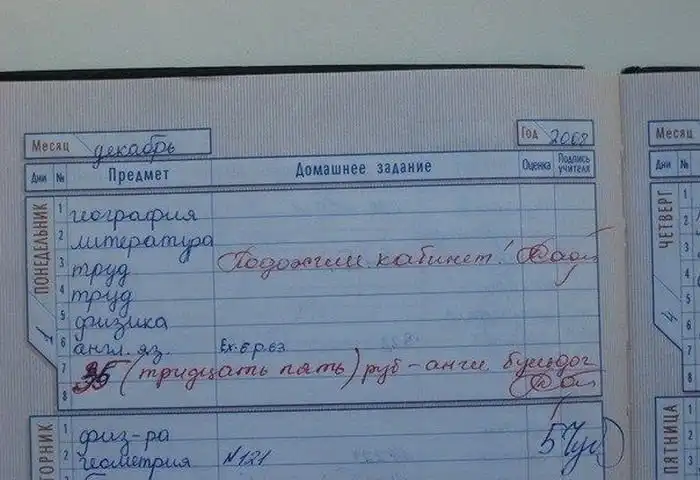 Месяц декабрь Год 2008 Месяц
Дни № Предмет Домашнее задание Оценка Подпись учителя Дни №
ПОНЕДЕЛЬНИК 1
1 география
2 литература
3 труд Подожгли кабинет!
4 труд
5 физика
6 англ. яз. Ex. 6 p. 63
7 35 (тридцать пять) руб - англ. бульдог
8
ВТОРНИК
1 физ-ра 5
2 геометрия №121
ЧЕТВЕРГ 4
1
2
3
4
5
6
7
8
ПЯТНИЦА
1
2
3